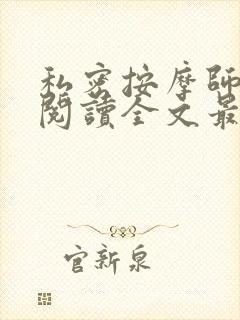 私密按摩師
閱讀全文最
官新泉